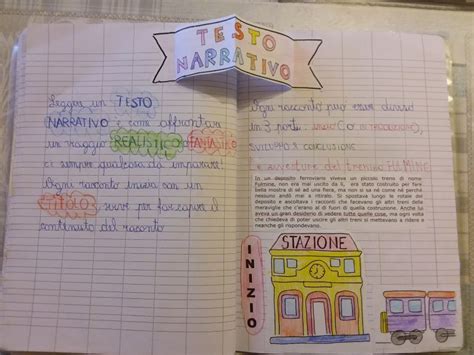 TESTO
NARRATIVO
Leggere un TESTO
NARRATIVO è come affrontare
un viaggio REALISTICO FANTASTICO
ci sempre qualcosa da imparare!
Ogni racconto inizia con un
TITOLO serve per far capire il
contenuto del racconto
Ogni racconto può esser diviso
in 3 parti: O INTRODUZIONE,
SVILUPPO E CONCLUSIONE
Le avventure del trenino FULMINE
In un deposito ferroviario viveva un piccolo treno di nome
Fulmine, non era mai uscito da lì, era stato costruito per fare
lieta mostra di sé ad una fiera, ma non si sa né come né perché
nessuno andò mai a ritirarlo. Si spostava lungo le rotaie del
deposito e ascoltava i racconti che facevano gli altri treni delle
meraviglie che c'erano al di fuori di quella costruzione. Anche lui
aveva un gran desiderio di vedere tutte quelle cose, ma ogni volta
che chiedeva di poter uscire gli altri treni si mettevano a ridere e
neanche gli rispondevano.
INIZIO
STAZIONE